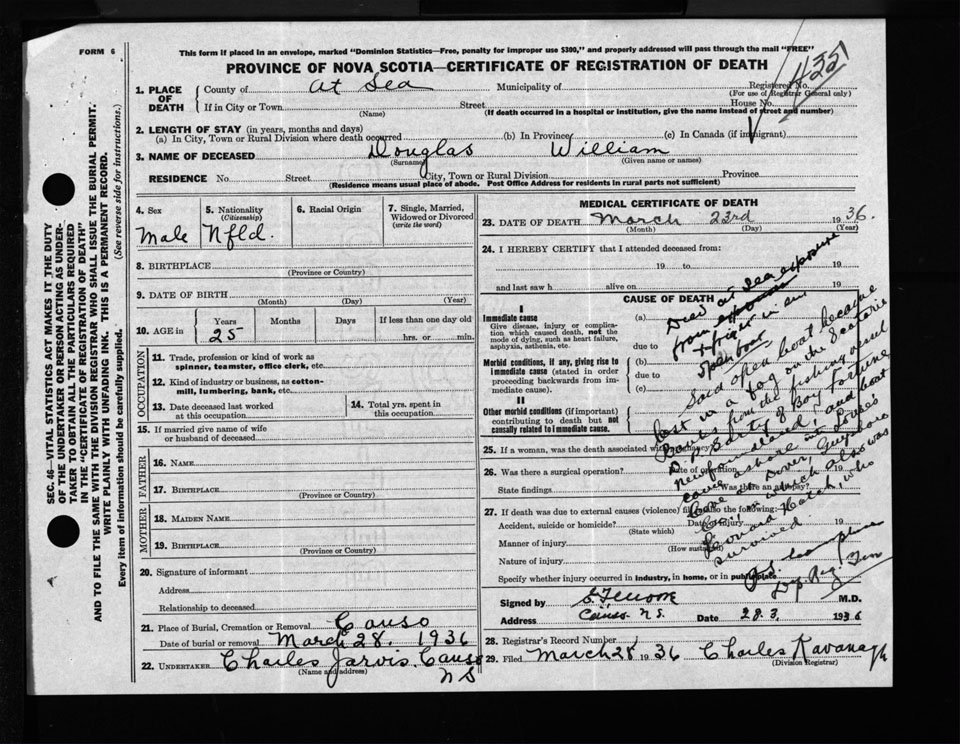 FORM 6
This form if placed in an envelope, marked "Dominion Statistics—Free, penalty for improper use $300," and properly addressed will pass through the mail "FREE"
PROVINCE OF NOVA SCOTIA—CERTIFICATE OF REGISTRATION OF DEATH
1. PLACE OF DEATH County of At Sea Municipality of Registered No. 435
(For use of Registrar General only)
If in City or Town Street House No.
(Name) (If death occurred in a hospital or institution, give the name instead of street and number)
2. LENGTH OF STAY (in years, months and days)
(a) In City, Town or Rural Division where death occurred (b) In Province (c) In Canada (if immigrant)
3. NAME OF DECEASED Douglas William
(Surname) (Given name or names)
RESIDENCE No. Street City, Town or Rural Division Province
(Residence means usual place of abode. Post Office Address for residents in rural parts not sufficient)
4. Sex
Male
5. Nationality
(Citizenship)
Nfld.
6. Racial Origin
7. Single, Married, Widowed or Divorced
(write the word)
8. BIRTHPLACE
(Province or Country)
9. DATE OF BIRTH
(Month) (Day) (Year)
10. AGE in Years Months Days If less than one day old
25 hrs. or min.
OCCUPATION
11. Trade, profession or kind of work as
spinner, teamster, office clerk, etc.
12. Kind of industry or business, as cotton-
mill, lumbering, bank, etc.
13. Date deceased last worked
at this occupation
14. Total yrs. spent in
this occupation
15. If married give name of wife
or husband of deceased
FATHER
16. NAME
17. BIRTHPLACE
(Province or Country)
MOTHER
18. MAIDEN NAME
19. BIRTHPLACE
(Province or Country)
20. Signature of informant
Address
Relationship to deceased
21. Place of Burial, Cremation or Removal Canso
Date of burial or removal March 28. 1936
22. UNDERTAKER Charles Jarvis. Canso
(Name and address) N S
MEDICAL CERTIFICATE OF DEATH
23. DATE OF DEATH March 23rd 1936.
(Month) (Day) (Year)
24. I HEREBY CERTIFY that I attended deceased from:
19 to 19
and last saw h alive on 19
CAUSE OF DEATH
I
Immediate cause
Give disease, injury or complica-
tion which caused death, not the
mode of dying, such as heart failure,
asphyxia, asthenia, etc.
(a)
due to
Morbid conditions, if any, giving rise to
immediate cause (stated in order
proceeding backwards from im-
mediate cause).
(b)
due to
(c)
II
Other morbid conditions (if important)
contributing to death but not
causally related to immediate cause.
Died at Sea exposure
from
& fright in an
open boat
Said open boat became
lost in a fog on the
Banks from the fishing vessel
of Fortune
Newfoundland, and boat
came ashore in
Cove at Dover, Guysboro
Co. in which also was
Hatch, who
survived
25. If a woman, was the death associated with
26. Was there a surgical operation? Date of operation 19
State findings Was there an autopsy?
27. If death was due to external causes (violence) fill in also the following:
Accident, suicide or homicide? Date of injury 19
(State which)
Manner of injury
(How sustained)
Nature of injury
Specify whether injury occurred in industry, in home, or in public place
Dep. Reg. Gen
Signed by M.D.
Address Canso N.S. Date 28.3. 1936
28. Registrar's Record Number 1
29. Filed March 28 1936 Charles Kavanagh
(Division Registrar)
SEC. 46—VITAL STATISTICS ACT MAKES IT THE DUTY
OF THE UNDERTAKER OR PERSON ACTING AS UNDER-
TAKER TO OBTAIN ALL THE PARTICULARS REQUIRED
IN THE "CERTIFICATE OF REGISTRATION OF DEATH"
AND TO FILE THE SAME WITH THE DIVISION REGISTRAR WHO SHALL ISSUE THE BURIAL PERMIT.
WRITE PLAINLY WITH UNFADING INK. THIS IS A PERMANENT RECORD.
Every item of information should be carefully supplied. (See reverse side for instructions.)